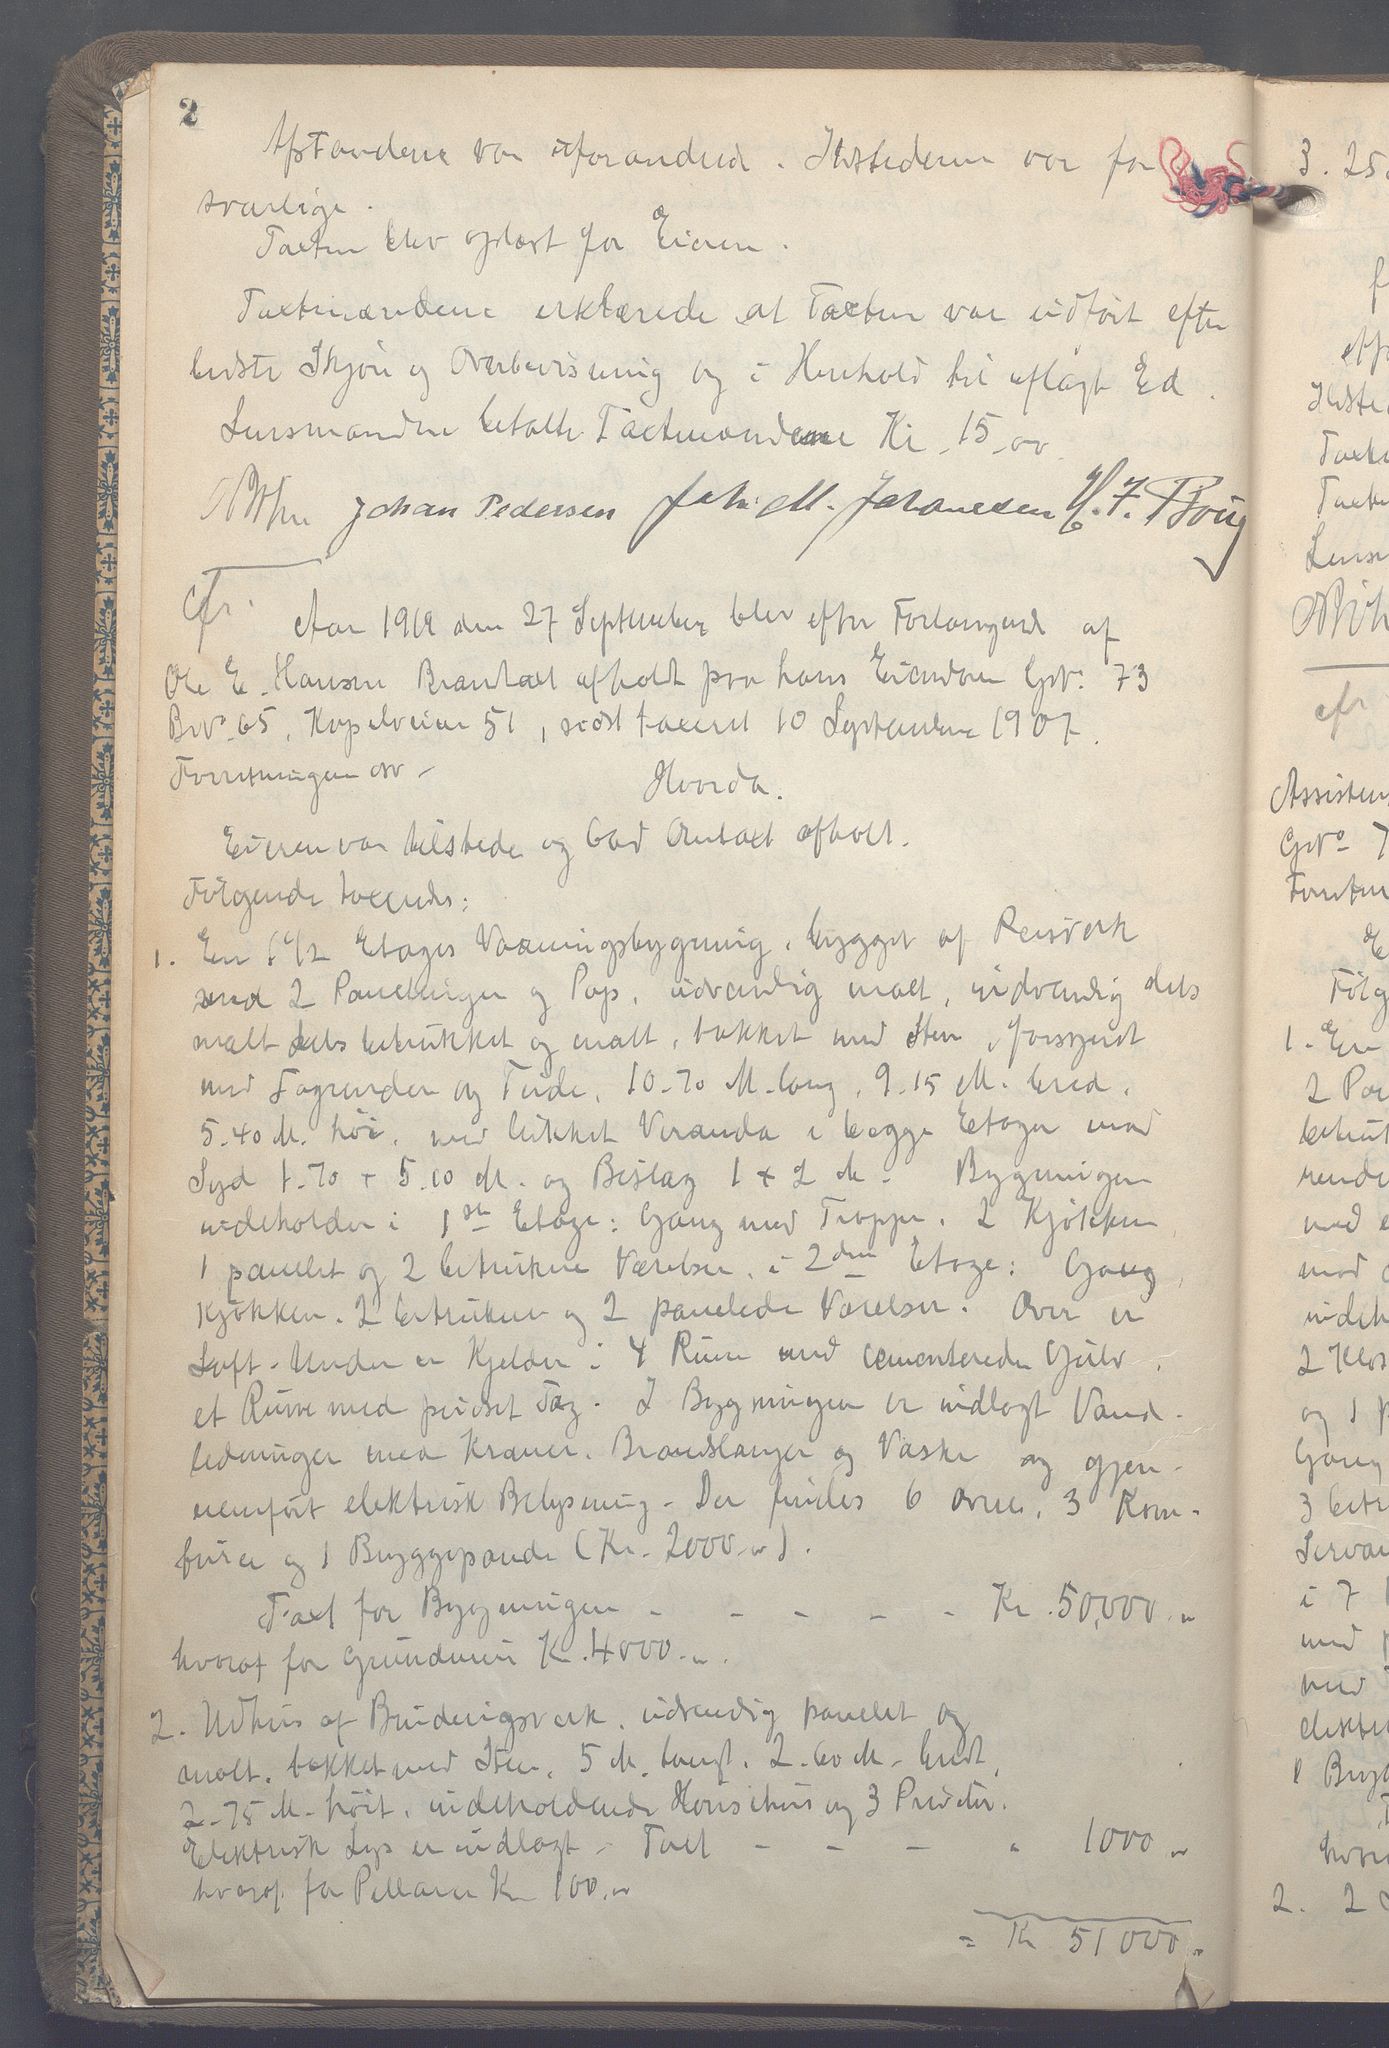 2
Afstandene var uforandrede. Ildstederne var for
svarlige.
Taxten blev oplæst for Eieren.
Taxtmændene erklærede at Taxten var udført efter
bedste Skjøn og Overbevisning og i Henhold til aflagt Ed.
Lensmanden betalte Taxtmændene Kr. 15.00
Johan Pedersen Joh. M. Johannesen
cfr.
Aar 1919 den 27 September blev efter Forlangende af
Ole E. Hansen Brandtaxt afholdt paa hans Eiendom Gno. 73
Bno. 65, Kapelveien 51, sidst taxeret 10 September 1907.
Forretningen osv -
Hvorda.
Eieren var tilstede og bad Omtaxt afholdt.
Følgende taxeredes:
1. En 1 1/2 Etages Vaaningsbygning, bygget af Reisverk
med 2 Panelninger og Pap, udvendig malt, indvendig dels
malt dels betrukket og malt, tækket med Sten, forsynet
med Tagrender og Tude, 10.70 M. lang, 9.15 M. bred,
5.40 M. høi, med lukket Veranda i begge Etager mod
Syd 1.70 + 5.10 M. og Bislag 1 + 2 M. Bygningen
indeholder i 1ste Etage: Gang med Trappe, 2 Kjøkken,
1 panelet og 2 betrukne Værelser, i 2den Etage: Gang,
Kjøkken, 2 betrukne og 2 panelede Værelser. Over er
Loft. Under er Kjelder i 4 Rum med cementerede Gulv,
et Rum med pudset Tag. I Bygningen er indlagt Vand-
ledninger med Kraner, Brandslanger og Vaske og gjen-
nemført elektrisk Belysning. Der findes 6 Ovne, 3 Kom-
furer og 1 Bryggepande (Kr. 2000.-).
Taxt for Bygningen - - - - - Kr. 50,000.-
hvoraf for Grundmur Kr. 4000.-.
2. Udhus af Bindingsverk, udvendig panelet og
malt, tækket med Sten, 5 M. langt, 2.60 M. bredt,
2.75 M. høit, indeholdende Hønsehus og 3 Priveter.
Elektrisk Lys er indlagt - Taxt - - - " 1000.-
hvoraf for Pillarer Kr. 100.-
= Kr. 51000.-
3. 25
cfr
Gno 7
Følg
1. En
2. 2